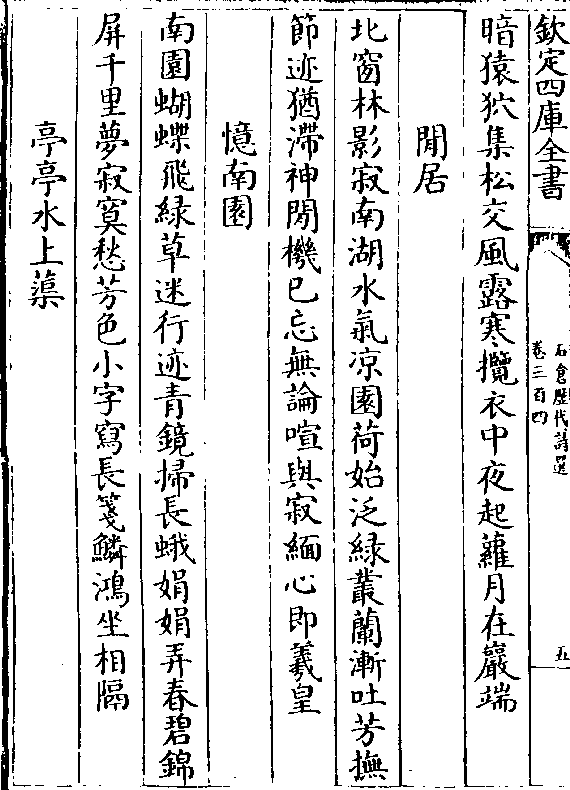 欽定四庫全書
石倉歴代詩選
卷三百四
五
暗猿狖集松交風露寒攬衣中夜起蘿月在巖端
閒居
北窗林影寂南湖水氣凉園荷始泛緑叢蘭漸吐芳撫
節迹猶滯神閒機已忘無論喧與寂緬心即羲皇
憶南園
南園蝴蝶飛緑草迷行迹青鏡掃長蛾娟娟弄春碧錦
屏千里夢寂寞愁芳色小字寫長箋鱗鴻坐相隔
亭亭水上蕖